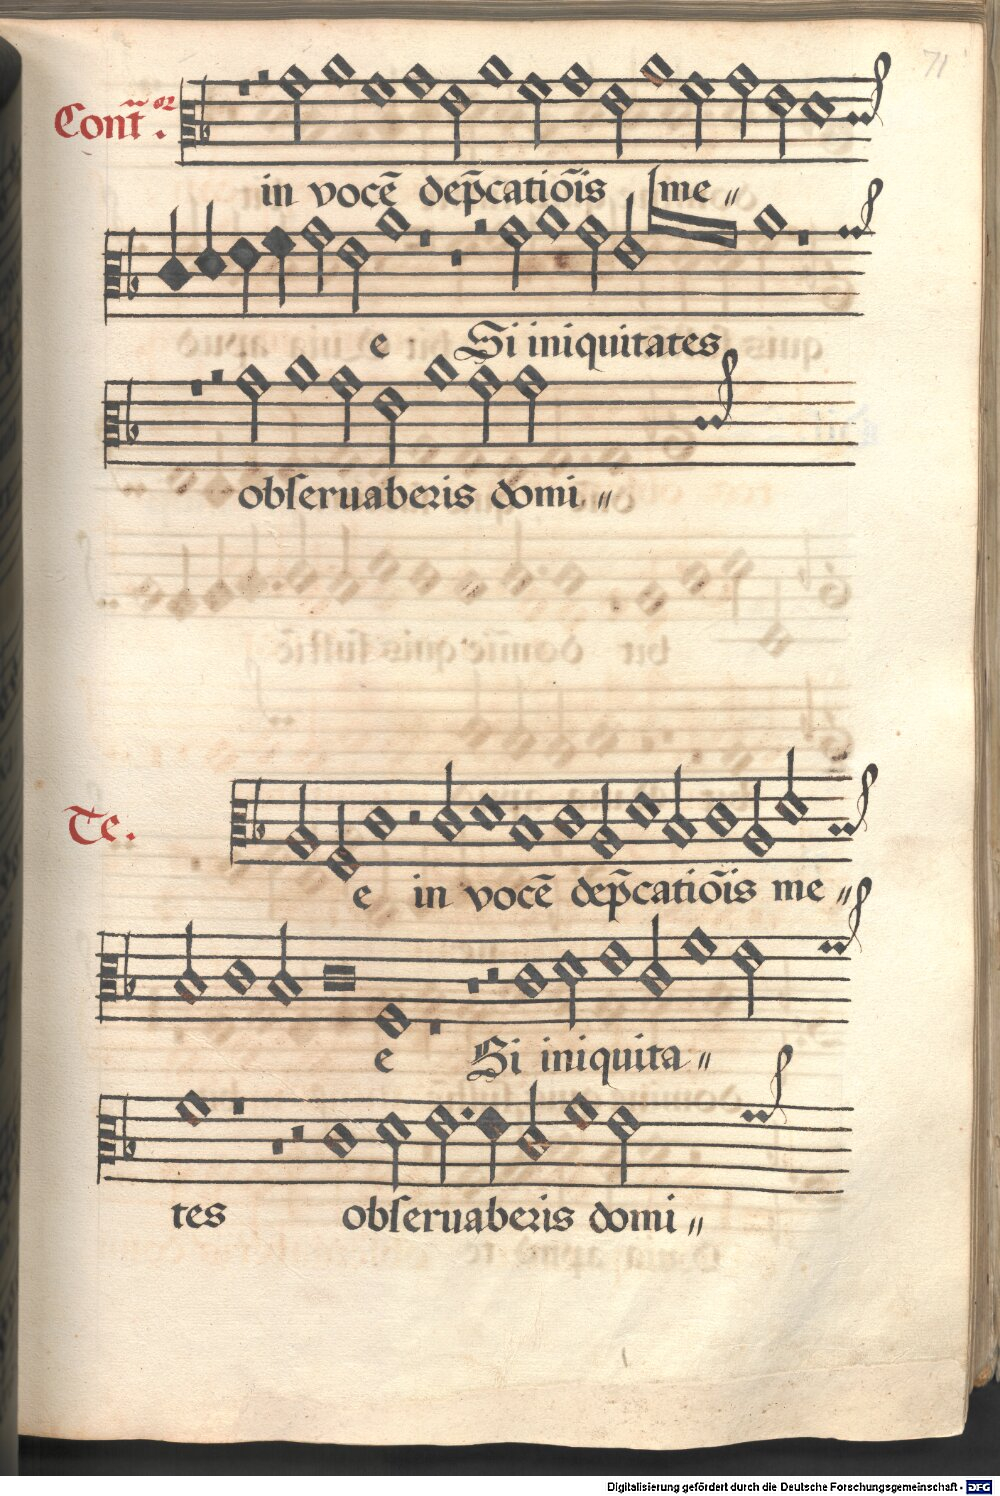 71
Cont̃or.
in vocẽ dep̃catiõis me〃
e Si iniquitates
obſeruaberis domi〃
Te.
e in vocẽ dep̃catiõis me〃
e Si iniquita〃
tes obſeruaberis domi〃
Digitalisierung gefördert durch die Deutsche Forschungsgemeinschaft - DFG